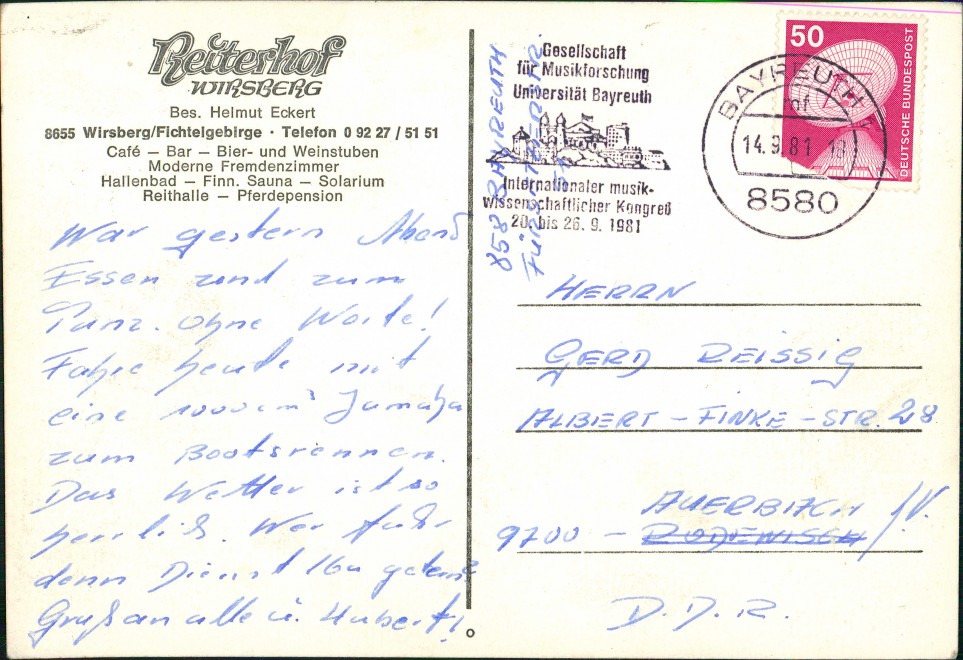 Reiterhof
WIRSBERG
Bes. Helmut Eckert
8655 Wirsberg/Fichtelgebirge · Telefon 0 92 27 / 51 51
Café – Bar – Bier- und Weinstuben
Moderne Fremdenzimmer
Hallenbad – Finn. Sauna – Solarium
Reithalle – Pferdepension
War gestern Abend
Essen und zum
Tanz. Ohne Worte!
Fahre heute mit
eine 1000 cm³ Jamaha
zum Bootsrennen.
Das Wetter ist so
herrlich. Wer
denn Dienst
Gruß an alle u. Hubert!
858 BAYREUTH
Gesellschaft
für Musikforschung
Universität Bayreuth
Internationaler musik-
wissenschaftlicher Kongreß
20. bis 26. 9. 1981
BAYREUTH
14.9.81
8580
50
DEUTSCHE BUNDESPOST
HERRN
GERD REISSIG
ALBERT-FINKE-STR. 28
AUERBACH /V.
9700 – RODEWISCH
D.D.R.